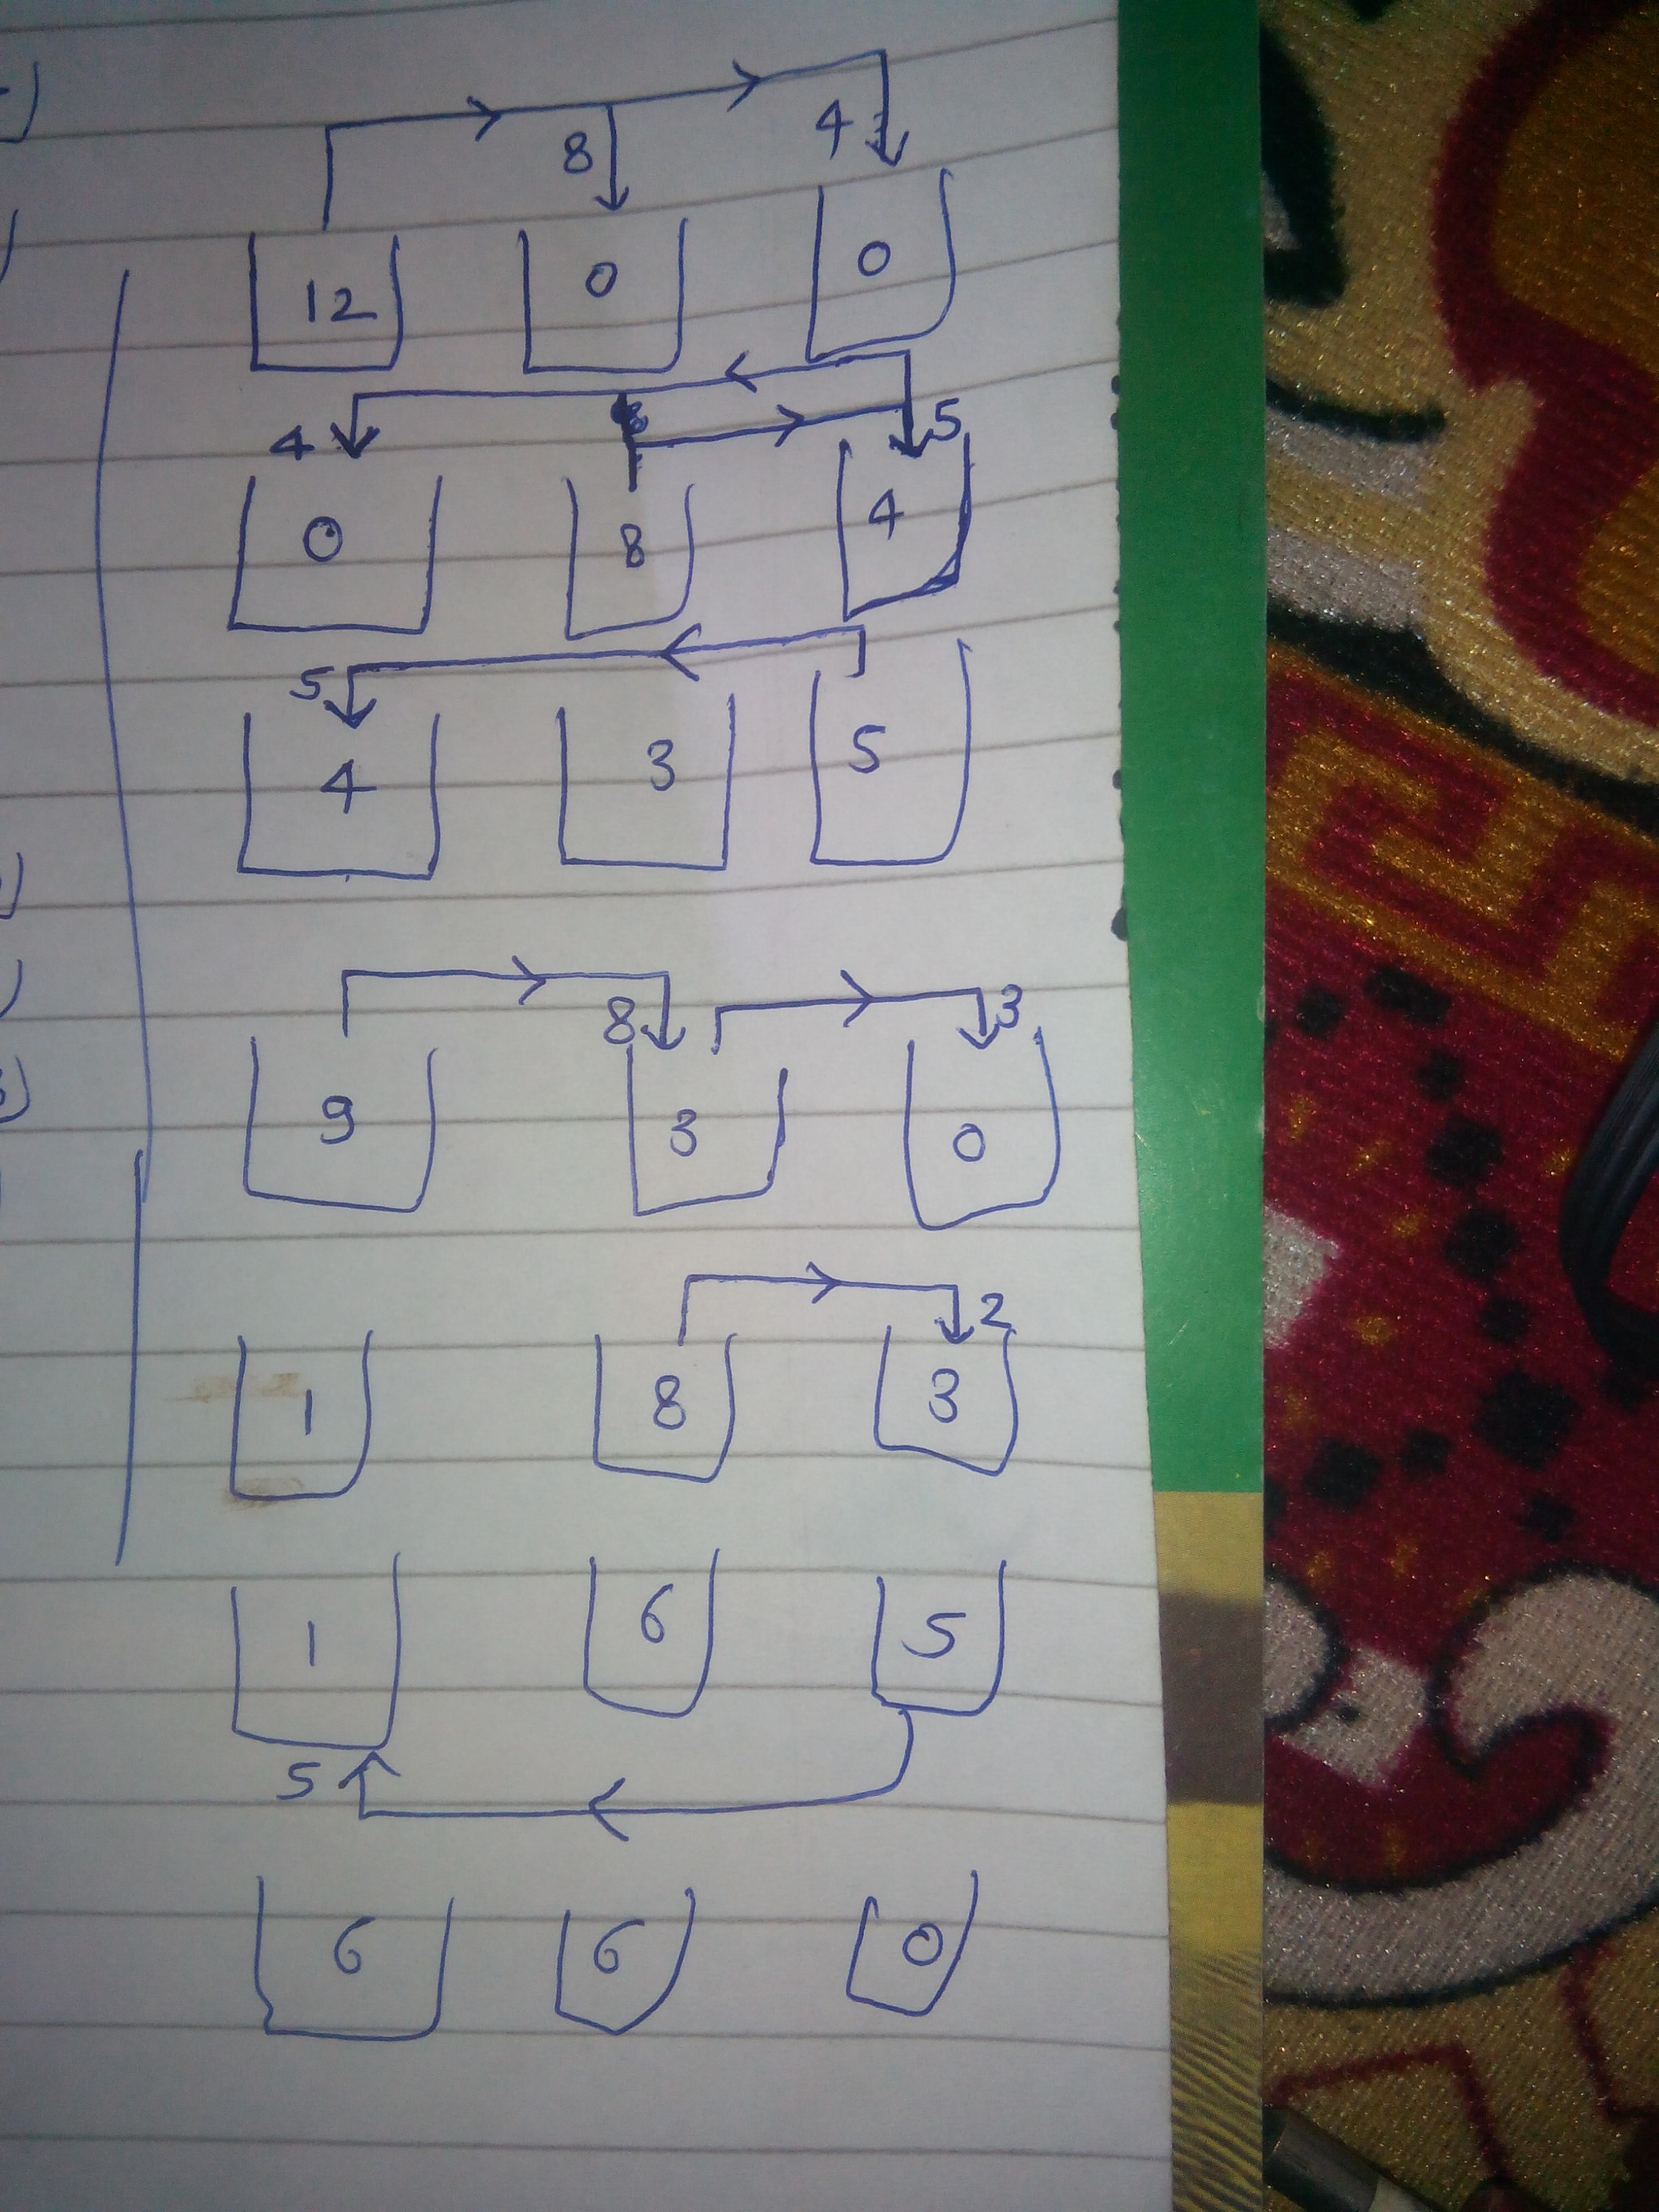 8 4
12 0 0
4 5
0 8 4
5
4 3 5
8 3
9 3 0
2
1 8 3
1 6 5
5
6 6 0